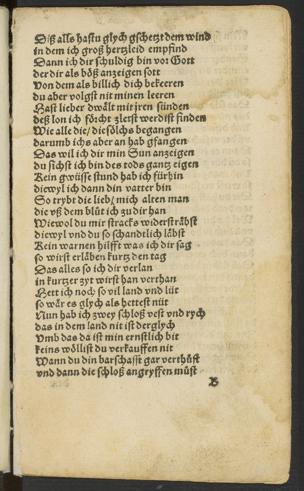 Diß alls hastu glych gschetzt dem wind
in dem ich groß hertzleid empfind
Dann ich dir schuldig bin vor Gott
der dir als böß anzeigen sott
Von dem als billich dich bekeeren
du aber volgst nit minen leeren
Hast lieber dwält mit jren sünden
deß lon ich förcht zlerst werdist finden
Wie alle die/ die sölchs begangen
darumb ichs aber an hab gfangen
Das wil ich dir min Sun anzeigen
du sichst ich bin des tods gantz eigen
Kein gwüsse stund hab ich fürhin
diewyl ich dann din vatter bin
So trybt die lieb/ mich alten man
die vß dem blüt ich zu dir han
Wiewol du mir stracks widersträbst
diewyl vnd du so schandtlich läbst
Kein warnen hilfft was ich dir sag
so wirst erläben kurtz den tag
Das alles so ich dir verlan
in kurtzer zyt wirst han verthan
Hett ich noch so vil land vnd lüt
so wär es glych als hettest nüt
Nun hab ich zwey schloß vest vnd rych
das in dem land nit ist derglych
Vmb das da ist min ernstlich bit
keins wöllist du verkauffen nit
Wann du din barschafft gar verthüst
vnd dann die schloß angryffen müst
B